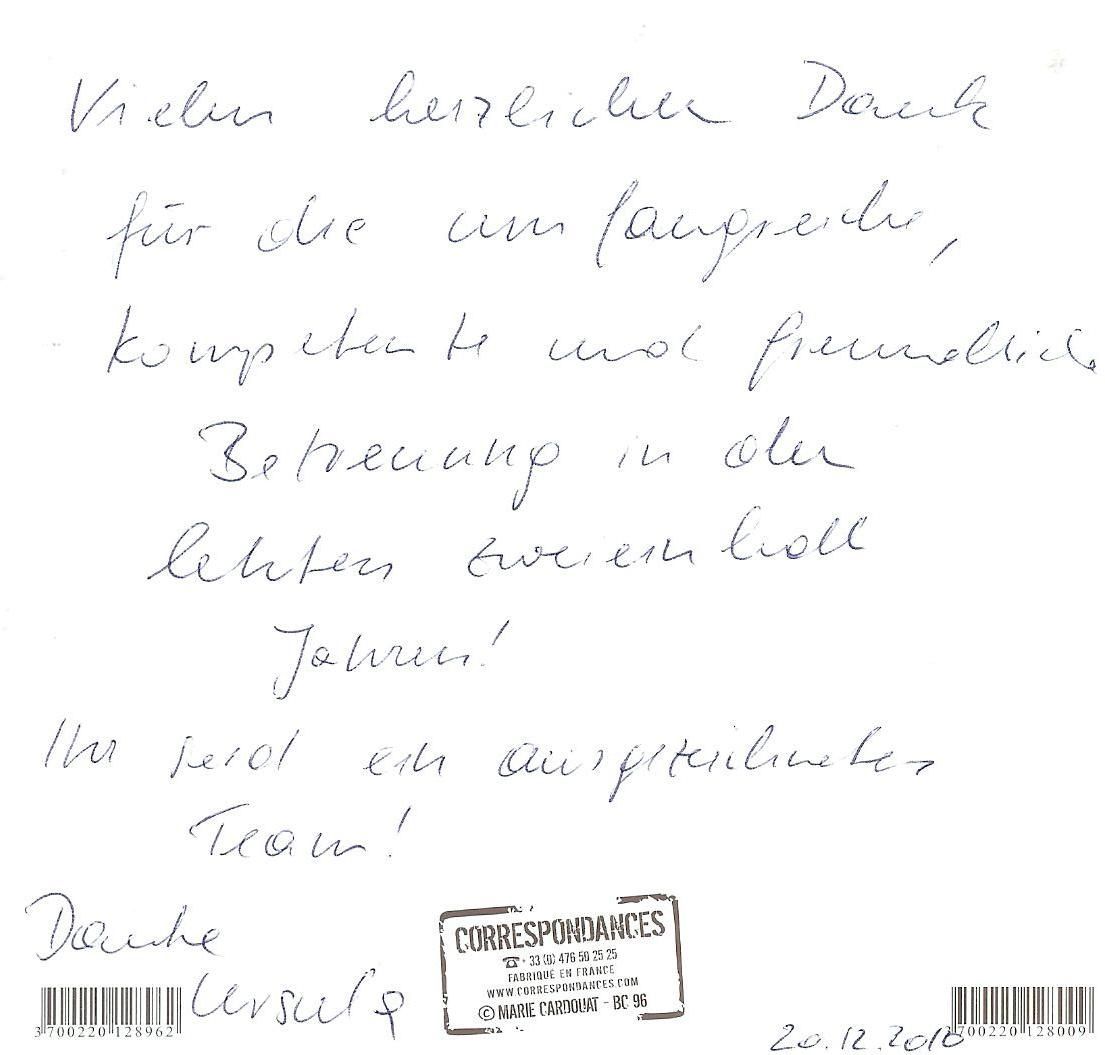 Vielen herzlichen Dank
für die umfangreiche,
kompetente und freundliche
Betreuung in den
letzten zweieinhalb
Jahren!
Ihr seid ein ausgezeichnetes
Team!
Danke
Ursula
CORRESPONDANCES
☎ + 33 (0) 476 50 25 25
FABRIQUÉ EN FRANCE
WWW.CORRESPONDANCES.COM
© MARIE CARDOUAT - BC 96
3700220 128962
3700220 128009
20.12.2010